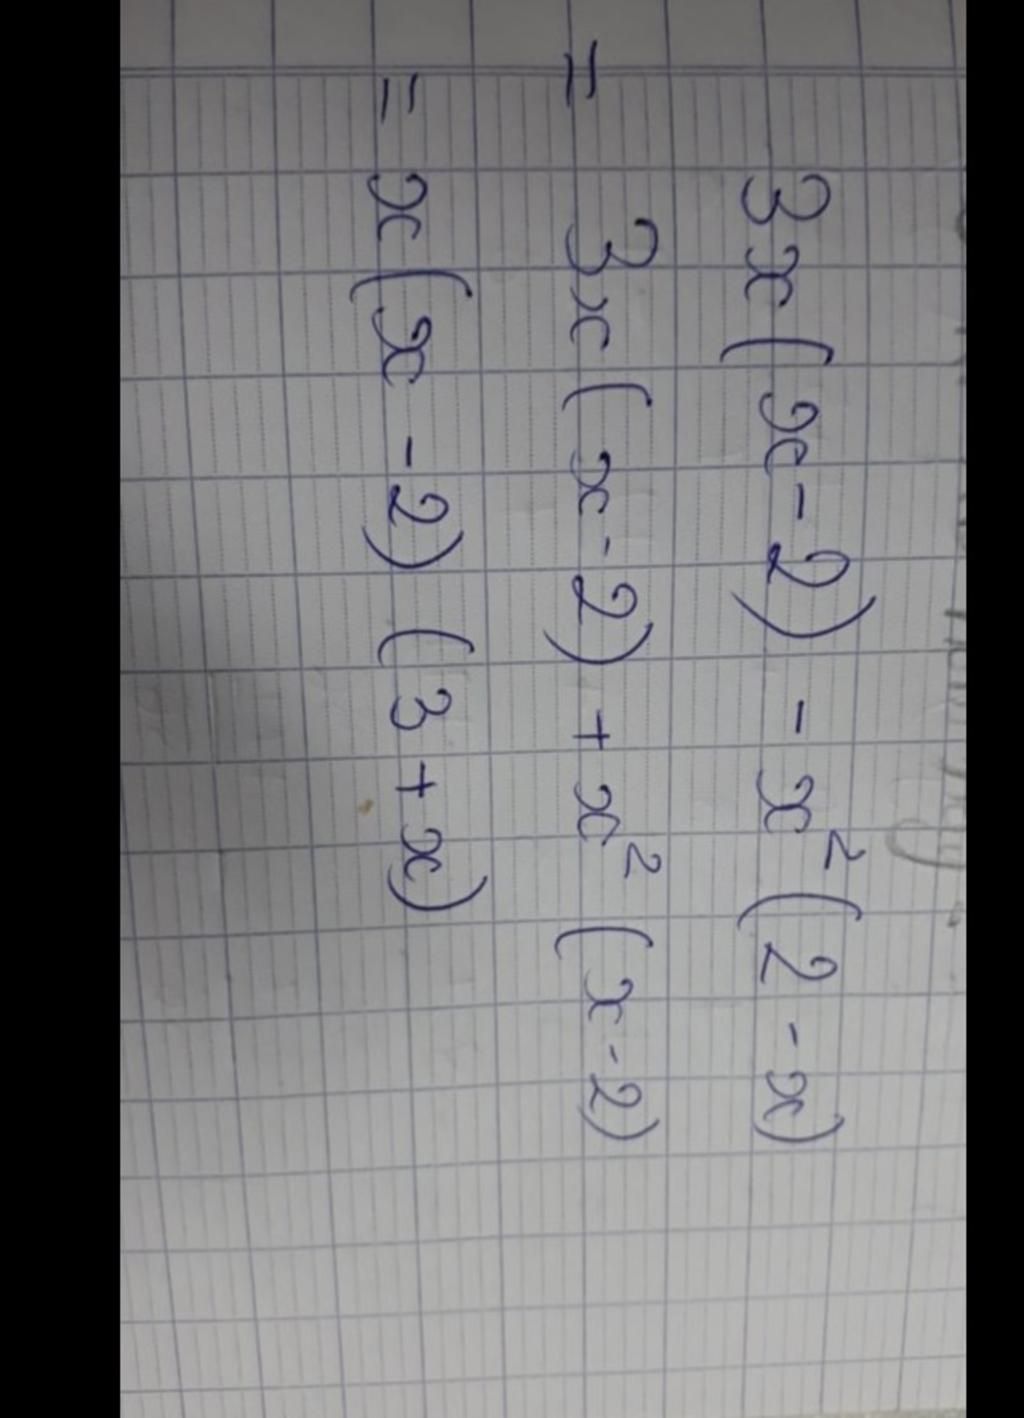 3x(x-2) - x²(2-x)
= 3x(x-2) + x²(x-2)
= x(x-2) (3+x)